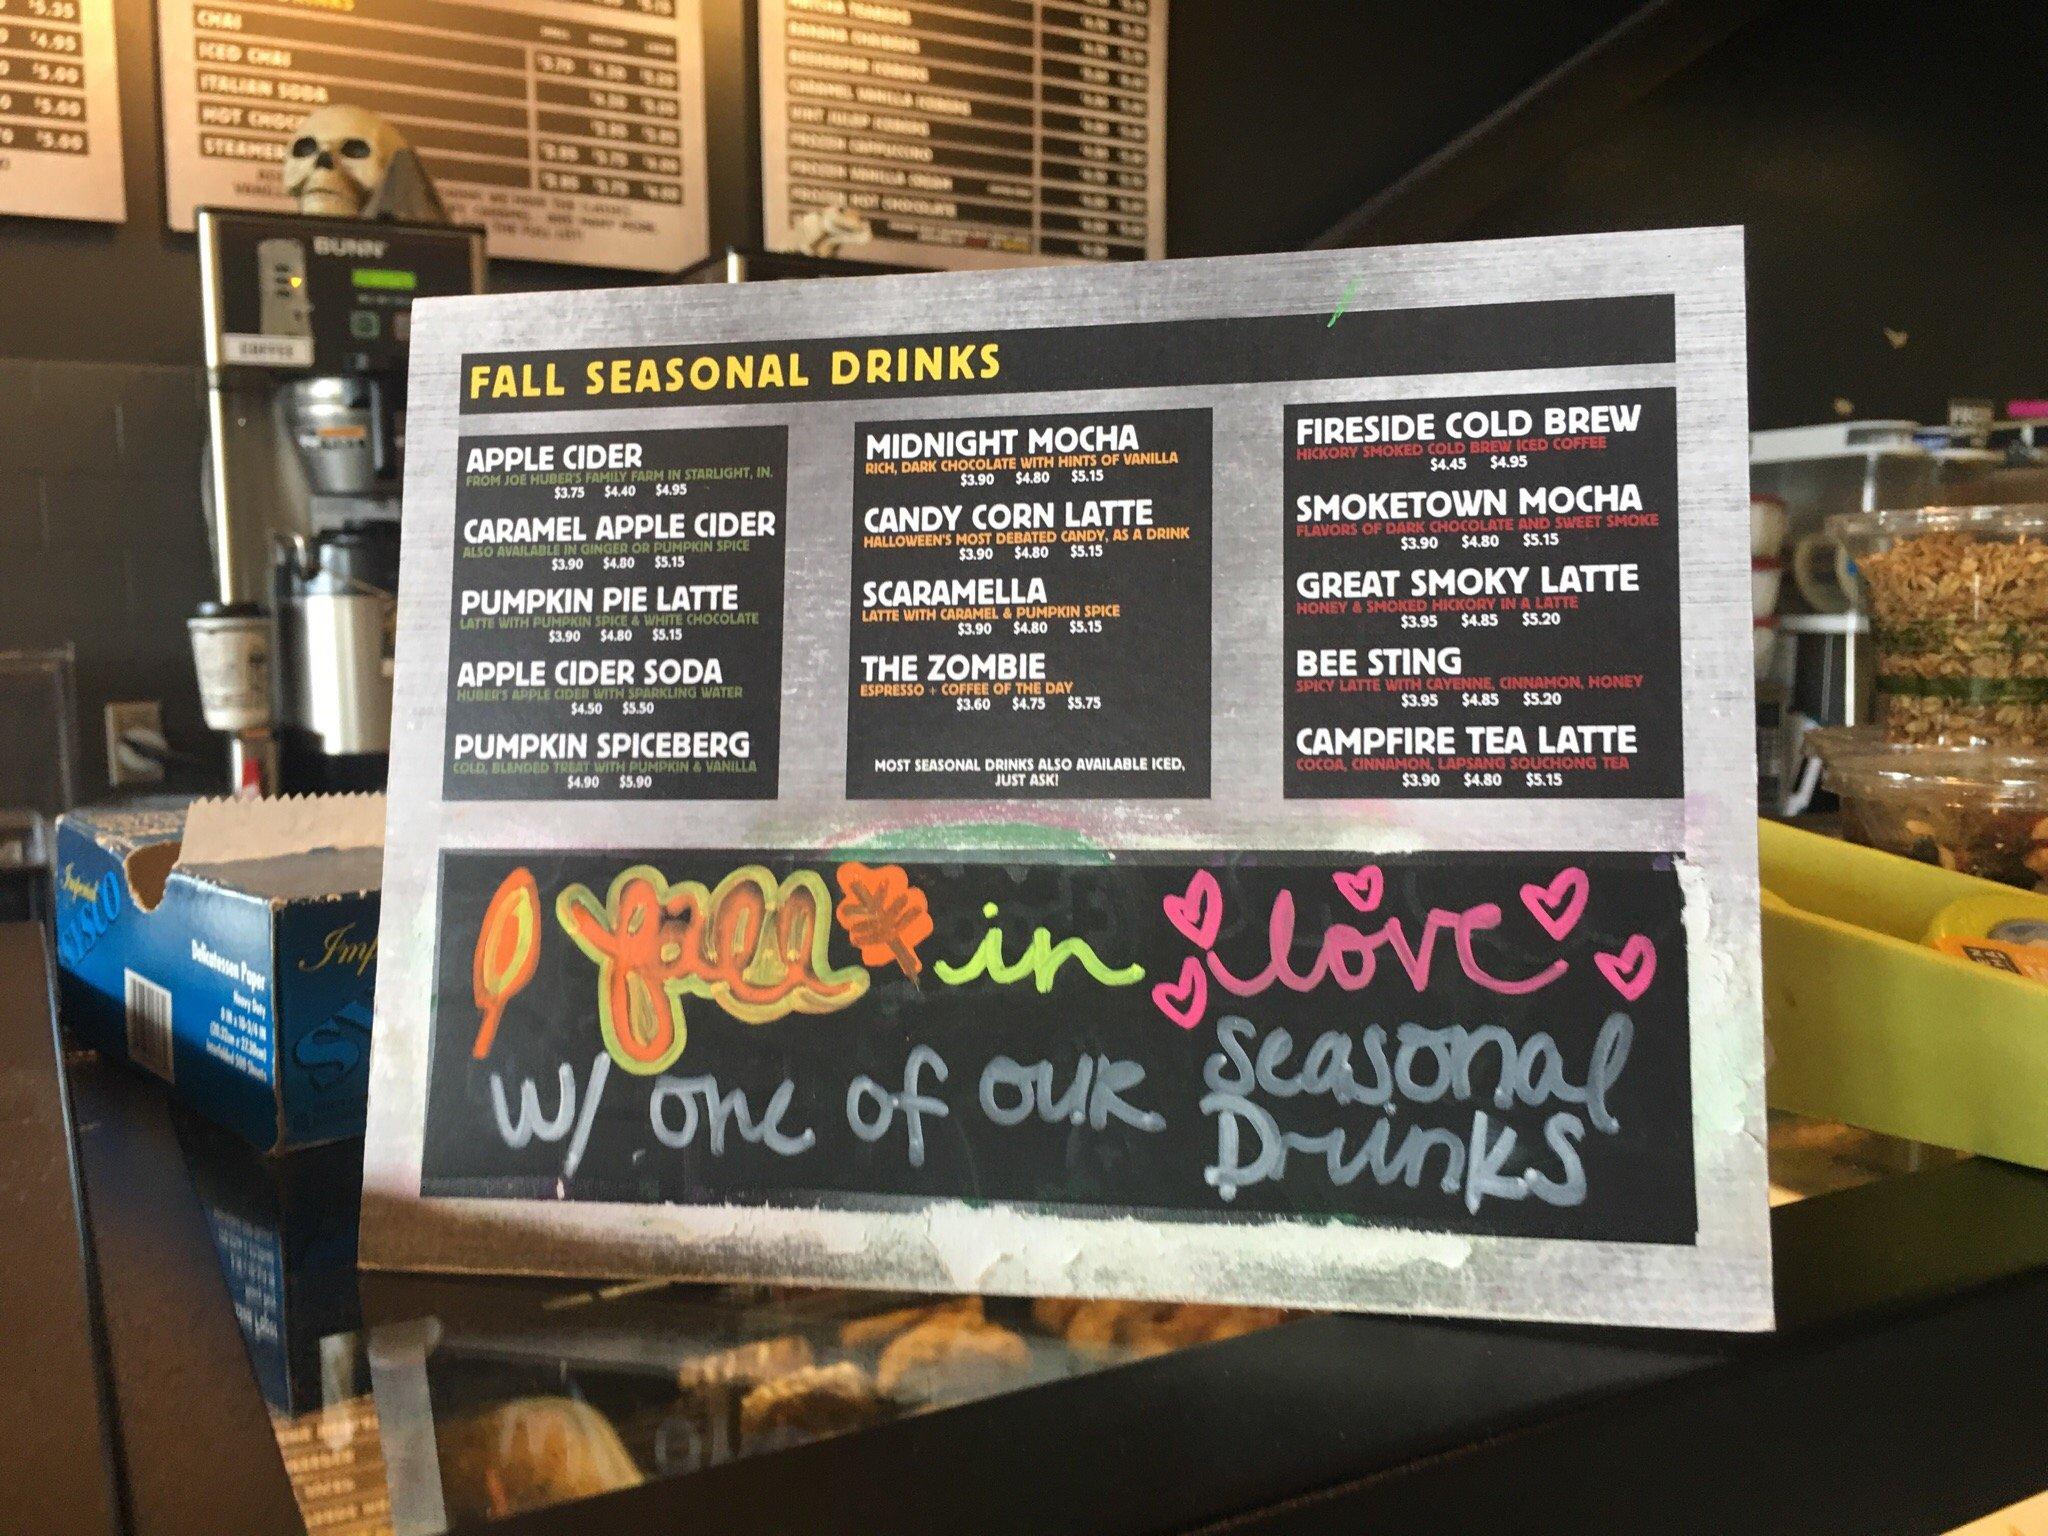 CHAI
ICED CHAI
ITALIAN SODA
STEAMER
FROZEN HOT CHOCOLATE
BUNN
COFFEE
FALL SEASONAL DRINKS
APPLE CIDER
FROM JOE HUBER'S FAMILY FARM IN STARLIGHT, IN.
$3.75 $4.40 $4.95
CARAMEL APPLE CIDER
ALSO AVAILABLE IN GINGER OR PUMPKIN SPICE
$3.90 $4.80 $5.15
PUMPKIN PIE LATTE
LATTE WITH PUMPKIN SPICE & WHITE CHOCOLATE
$3.90 $4.80 $5.15
APPLE CIDER SODA
HUBER'S APPLE CIDER WITH SPARKLING WATER
$4.50 $5.50
PUMPKIN SPICEBERG
COLD, BLENDED TREAT WITH PUMPKIN & VANILLA
$4.90 $5.90
MIDNIGHT MOCHA
RICH, DARK CHOCOLATE WITH HINTS OF VANILLA
$3.90 $4.80 $5.15
CANDY CORN LATTE
HALLOWEEN'S MOST DEBATED CANDY, AS A DRINK
$3.90 $4.80 $5.15
SCARAMELLA
LATTE WITH CARAMEL & PUMPKIN SPICE
$3.90 $4.80 $5.15
THE ZOMBIE
ESPRESSO + COFFEE OF THE DAY
$3.60 $4.75 $5.75
MOST SEASONAL DRINKS ALSO AVAILABLE ICED,
JUST ASK!
FIRESIDE COLD BREW
HICKORY SMOKED COLD BREW ICED COFFEE
$4.45 $4.95
SMOKETOWN MOCHA
FLAVORS OF DARK CHOCOLATE AND SWEET SMOKE
$3.90 $4.80 $5.15
GREAT SMOKY LATTE
HONEY & SMOKED HICKORY IN A LATTE
$3.95 $4.85 $5.20
BEE STING
SPICY LATTE WITH CAYENNE, CINNAMON, HONEY
$3.95 $4.85 $5.20
CAMPFIRE TEA LATTE
COCOA, CINNAMON, LAPSANG SOUCHONG TEA
$3.90 $4.80 $5.15
fall in love
w/ one of our seasonal
Drinks
Imperial
SYSCO
Delicatessen Paper
Heavy Duty